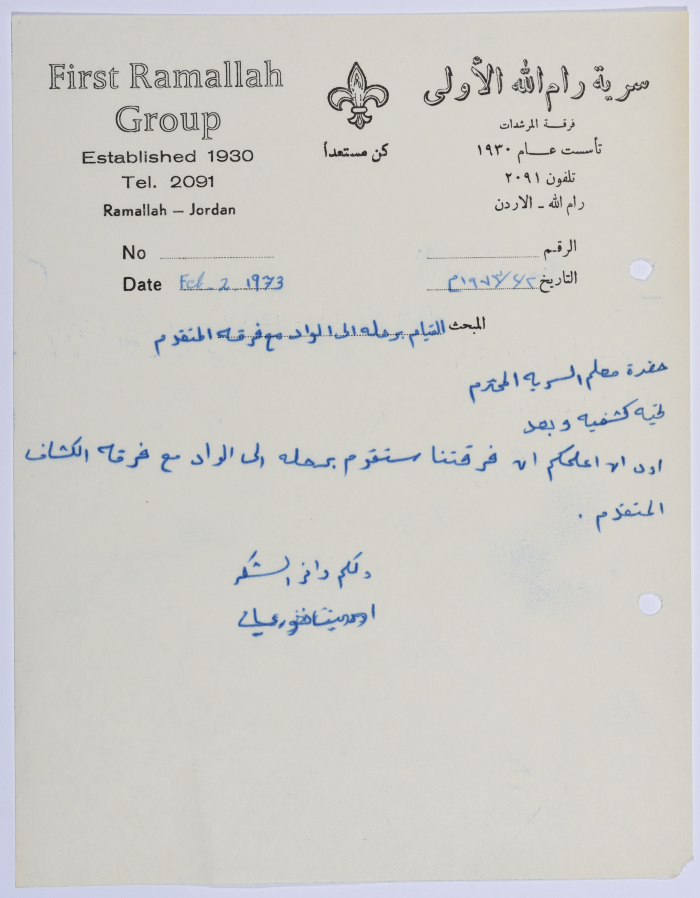 First Ramallah
Group
Established 1930
Tel. 2091
Ramallah – Jordan
كن مستعداً
سرية رام الله الأولى
فرقة المرشدات
تأسست عام ١٩٣٠
تلفون ٢٠٩١
رام الله - الاردن
No
الرقم
Date Feb. 2. 1973
التاريخ ١٩٧٣/٢/٢م
المبحث القيام برحله الى الواد مع فرقة المتقدم
حضرة معلم السريه المحترم
تحيه كشفيه وبعد
اود ان اعلمكم ان فرقتنا ستقوم برحله الى الواد مع فرقة الكشاف
المتقدم .
ولكم وافر الشكر